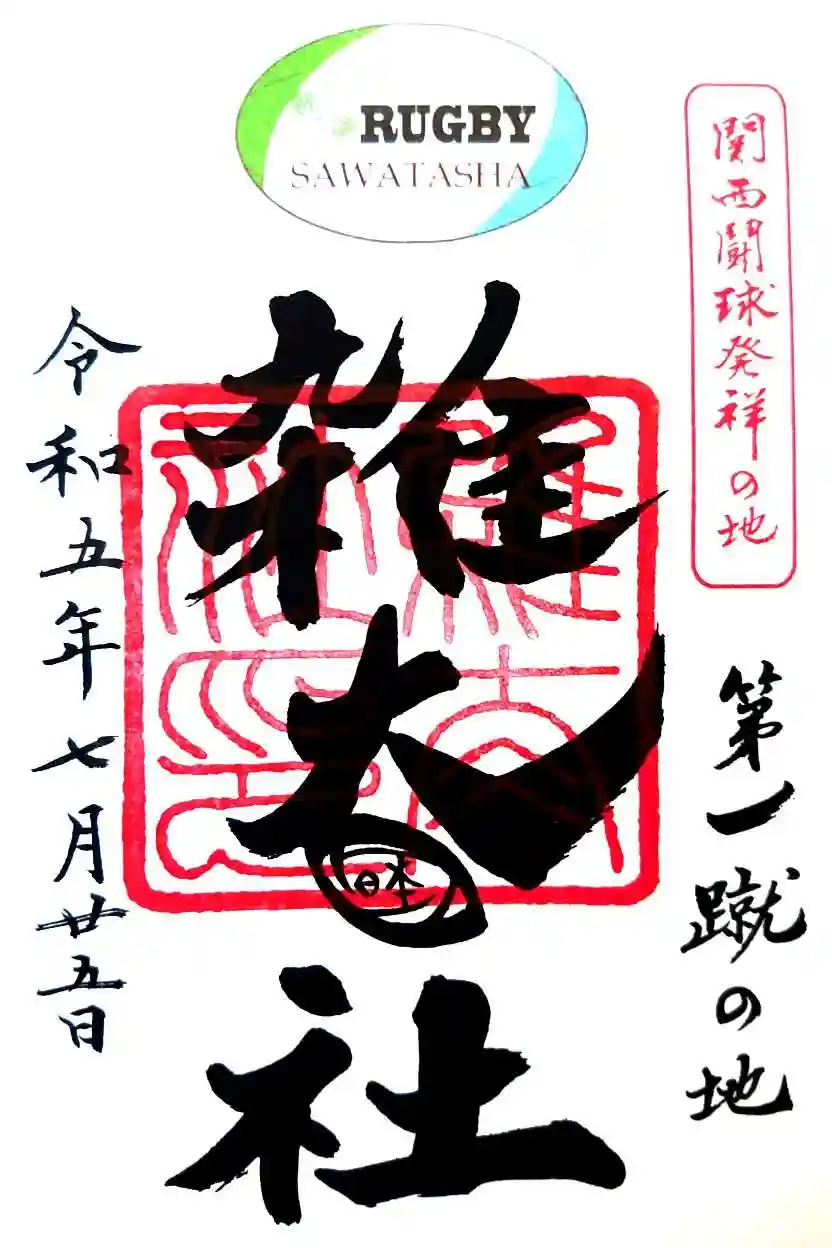 RUGBY
SAWATASHA
関西闘球発祥の地
第一蹴の地
雑太社
令和五年七月廿五日